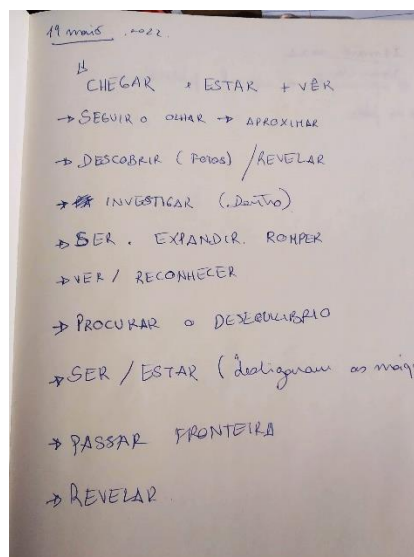 19 maio 2022
↓
CHEGAR + ESTAR + VÊR
→ SEGUIR O OLHAR → APROXIMAR
→ DESCOBRIR (Fotos) / REVELAR
→ INVESTIGAR (.Dentro)
→ SER . EXPANDIR. ROMPER
→ VER / RECONHECER
→ PROCURAR O DESEQUILIBRIO
→ SER / ESTAR (desligaram as máq
→ PASSAR FRONTEIRA
→ REVELAR